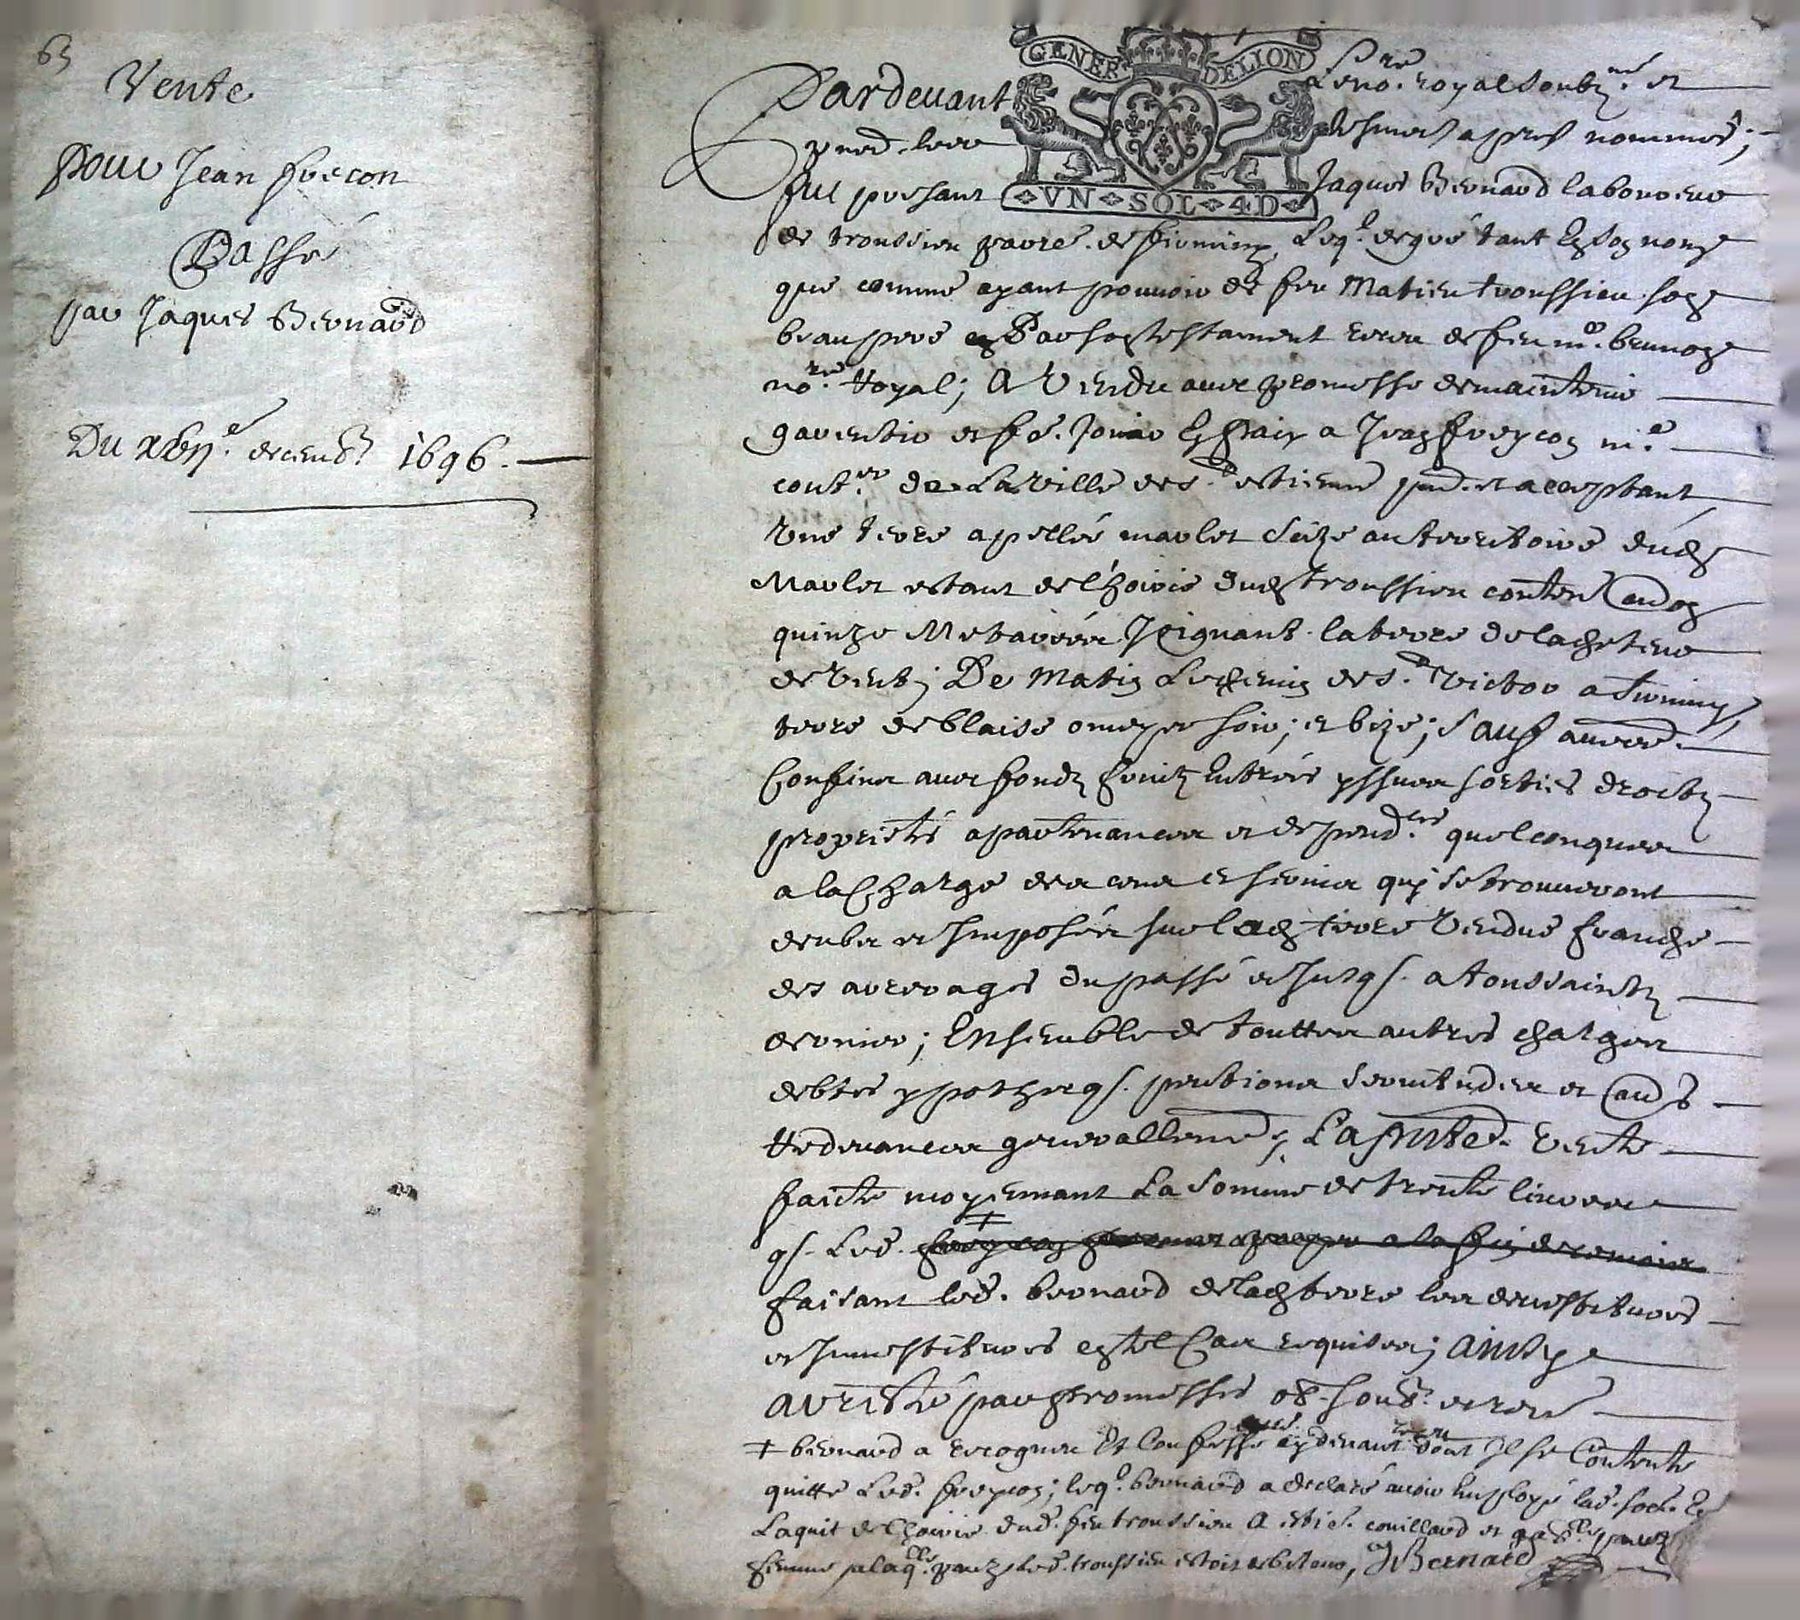 63
Vente
Pour Jean freçon
Passé
par Jaques Bernard
Du xbii.e decemb. 1696.
GENER DELION
VN SOL 4D
Pardevant Le no.re royal soubz.né et
pnt les tesmoins apres nommés;
fut presant Jaques Bernard laboureur
de troussieu parroe. de firminy, Leql. de gré tant En son nom
que comme ayant pouvoir de feu Matieu troussieu son
beaupere Par son testament receu de feu me. brunon
no.re Royal; A Vendu avec promesse de maintenir
garentir et fe. Jouir En paix a Jean freycon m.e
cout.er de La Ville de s.t estienne pnt. et acceptant
Une terre apellée marlet size au terretoire dud.
Marlet estant de l'hoirie dud. troussieu content. Environ
quinze Metanées Joignant la terre de lachepteur
de Vent; De Matin Le chemin de s.t Victor a firminy,
terre de blaise omeyer soir; et bize; sauf autres
Confins avec fondz fruitz Entrées yssues sorties droitz
proprietés apartenances et depend.ces quelconques
a la Charge des cens et servis quj se trouveront
deubz et Imposés sur lad. terre Vendue franche
des arrerages du passé et Jusqs. a toussaintz
dernier; Ensemble de touttes autres charges
debtes ypotheqs. pentions servitudes et aud.
Redevances generallement; La pnte. Vente
faicte moyenant La somme de trente livres
qs. Led.
faisant led. bernard de lad. terre les devestitures
et Investitures en tel Cas requises; Ainsy
aresté par promesses ob. soub. et ren.
+ bernard a recogneu Et Confessé avoir cydevant receu dont Il se Contente
quitte Led. freycon; leql. bernard a declaré avoir Employé lad. some. En
Laquit de lhoirie dud. feu troussieu A estie. couillard et
femme a laq.lle led. troussieu estoit debiteur, JBernard